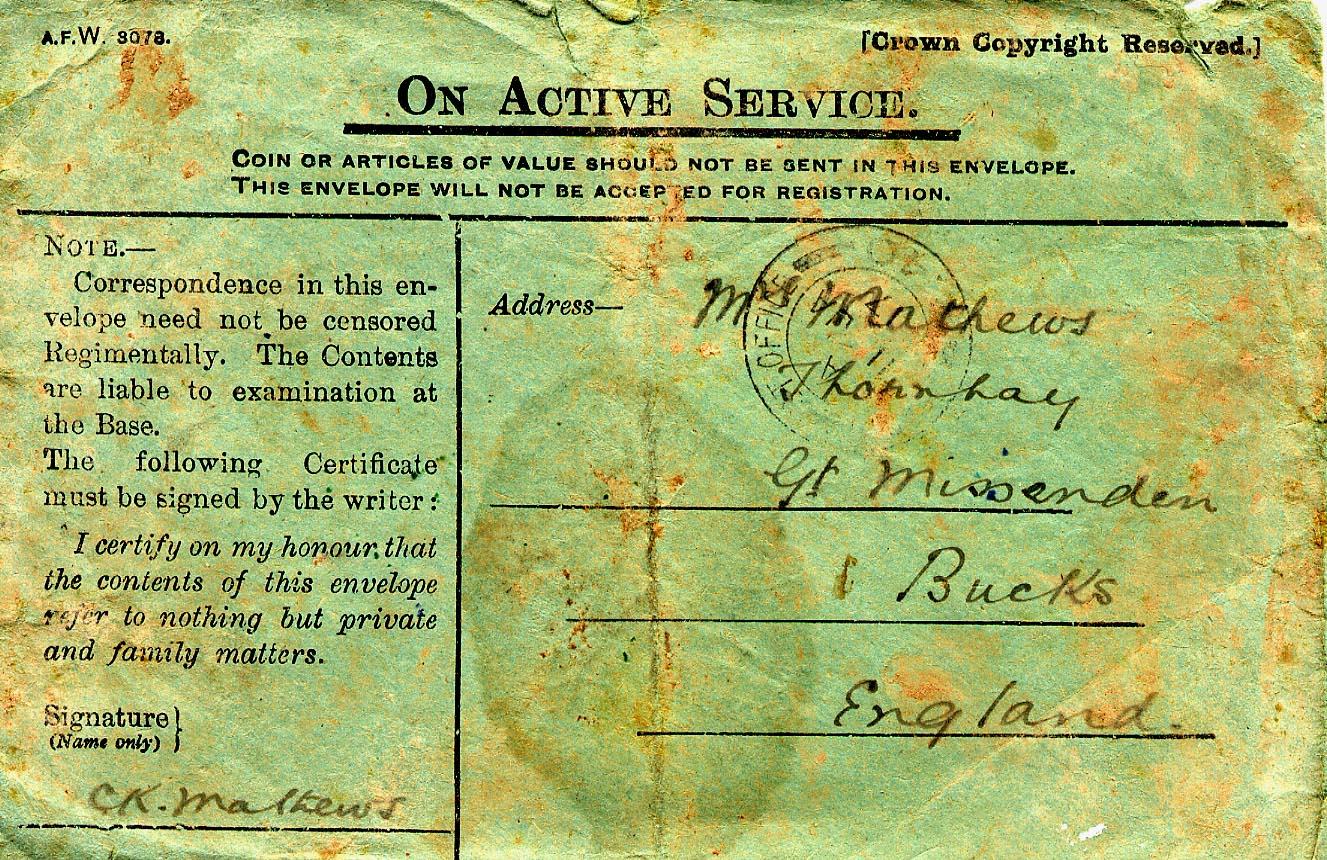 A.F.W. 3078.
[Crown Copyright Reserved.]
ON ACTIVE SERVICE.
COIN OR ARTICLES OF VALUE SHOULD NOT BE SENT IN THIS ENVELOPE.
THIS ENVELOPE WILL NOT BE ACCEPTED FOR REGISTRATION.
NOTE.—
Correspondence in this en-
velope need not be censored
Regimentally. The Contents
are liable to examination at
the Base.
The following Certificate
must be signed by the writer:
I certify on my honour that
the contents of this envelope
refer to nothing but private
and family matters.
Signature}
(Name only)
CK. Mathews
Address—
Mathews
Thornhay
Gt Missenden
Bucks
England.
OFFICE